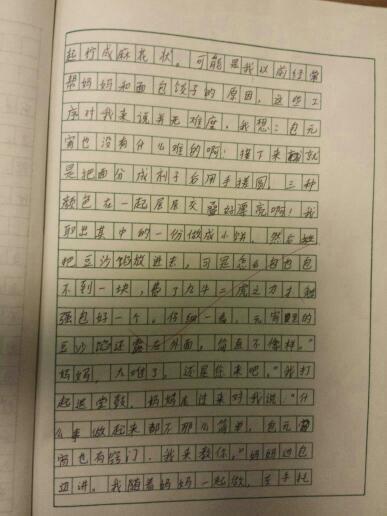 起拧成麻花状。可能是我以前经常
帮妈妈和面包饺子的原因，这些工
序对我来说并无难度，我想：包元
宵也没有什么难的啊！接下来就
是把面分成剂子后用手搓圆，三种
颜色在一起层层交叠好漂亮啊！我
取出其中的一份做成小饼，然后
把豆沙馅放进去，可是怎么包也包
不到一块，费了九牛二虎之力才勉
强包好一个。仔细一看，元宵里的
豆沙馅还露在外面，简直不像样。“
妈妈，太难了，还是你来吧。”我打
起退堂鼓，妈妈走过来对我说：“什
么事做起来都不那么简单，包元
宵也有窍门，我来教你。”妈妈边包
边讲。我随着妈妈一起做，左手托